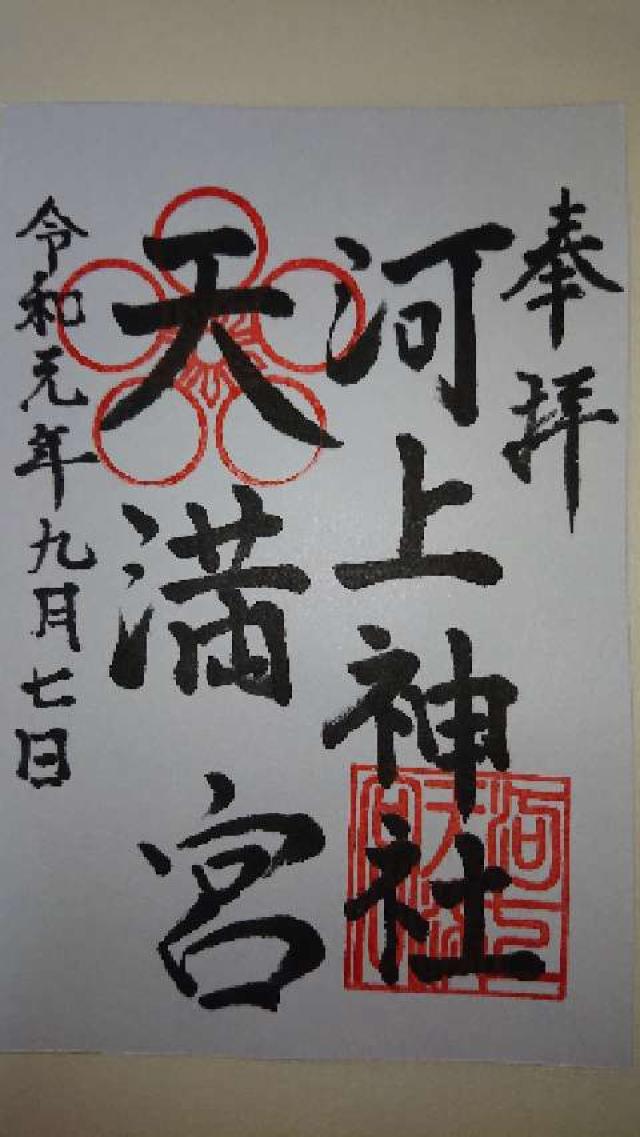 奉拝
河上神社
天満宮
令和元年九月七日